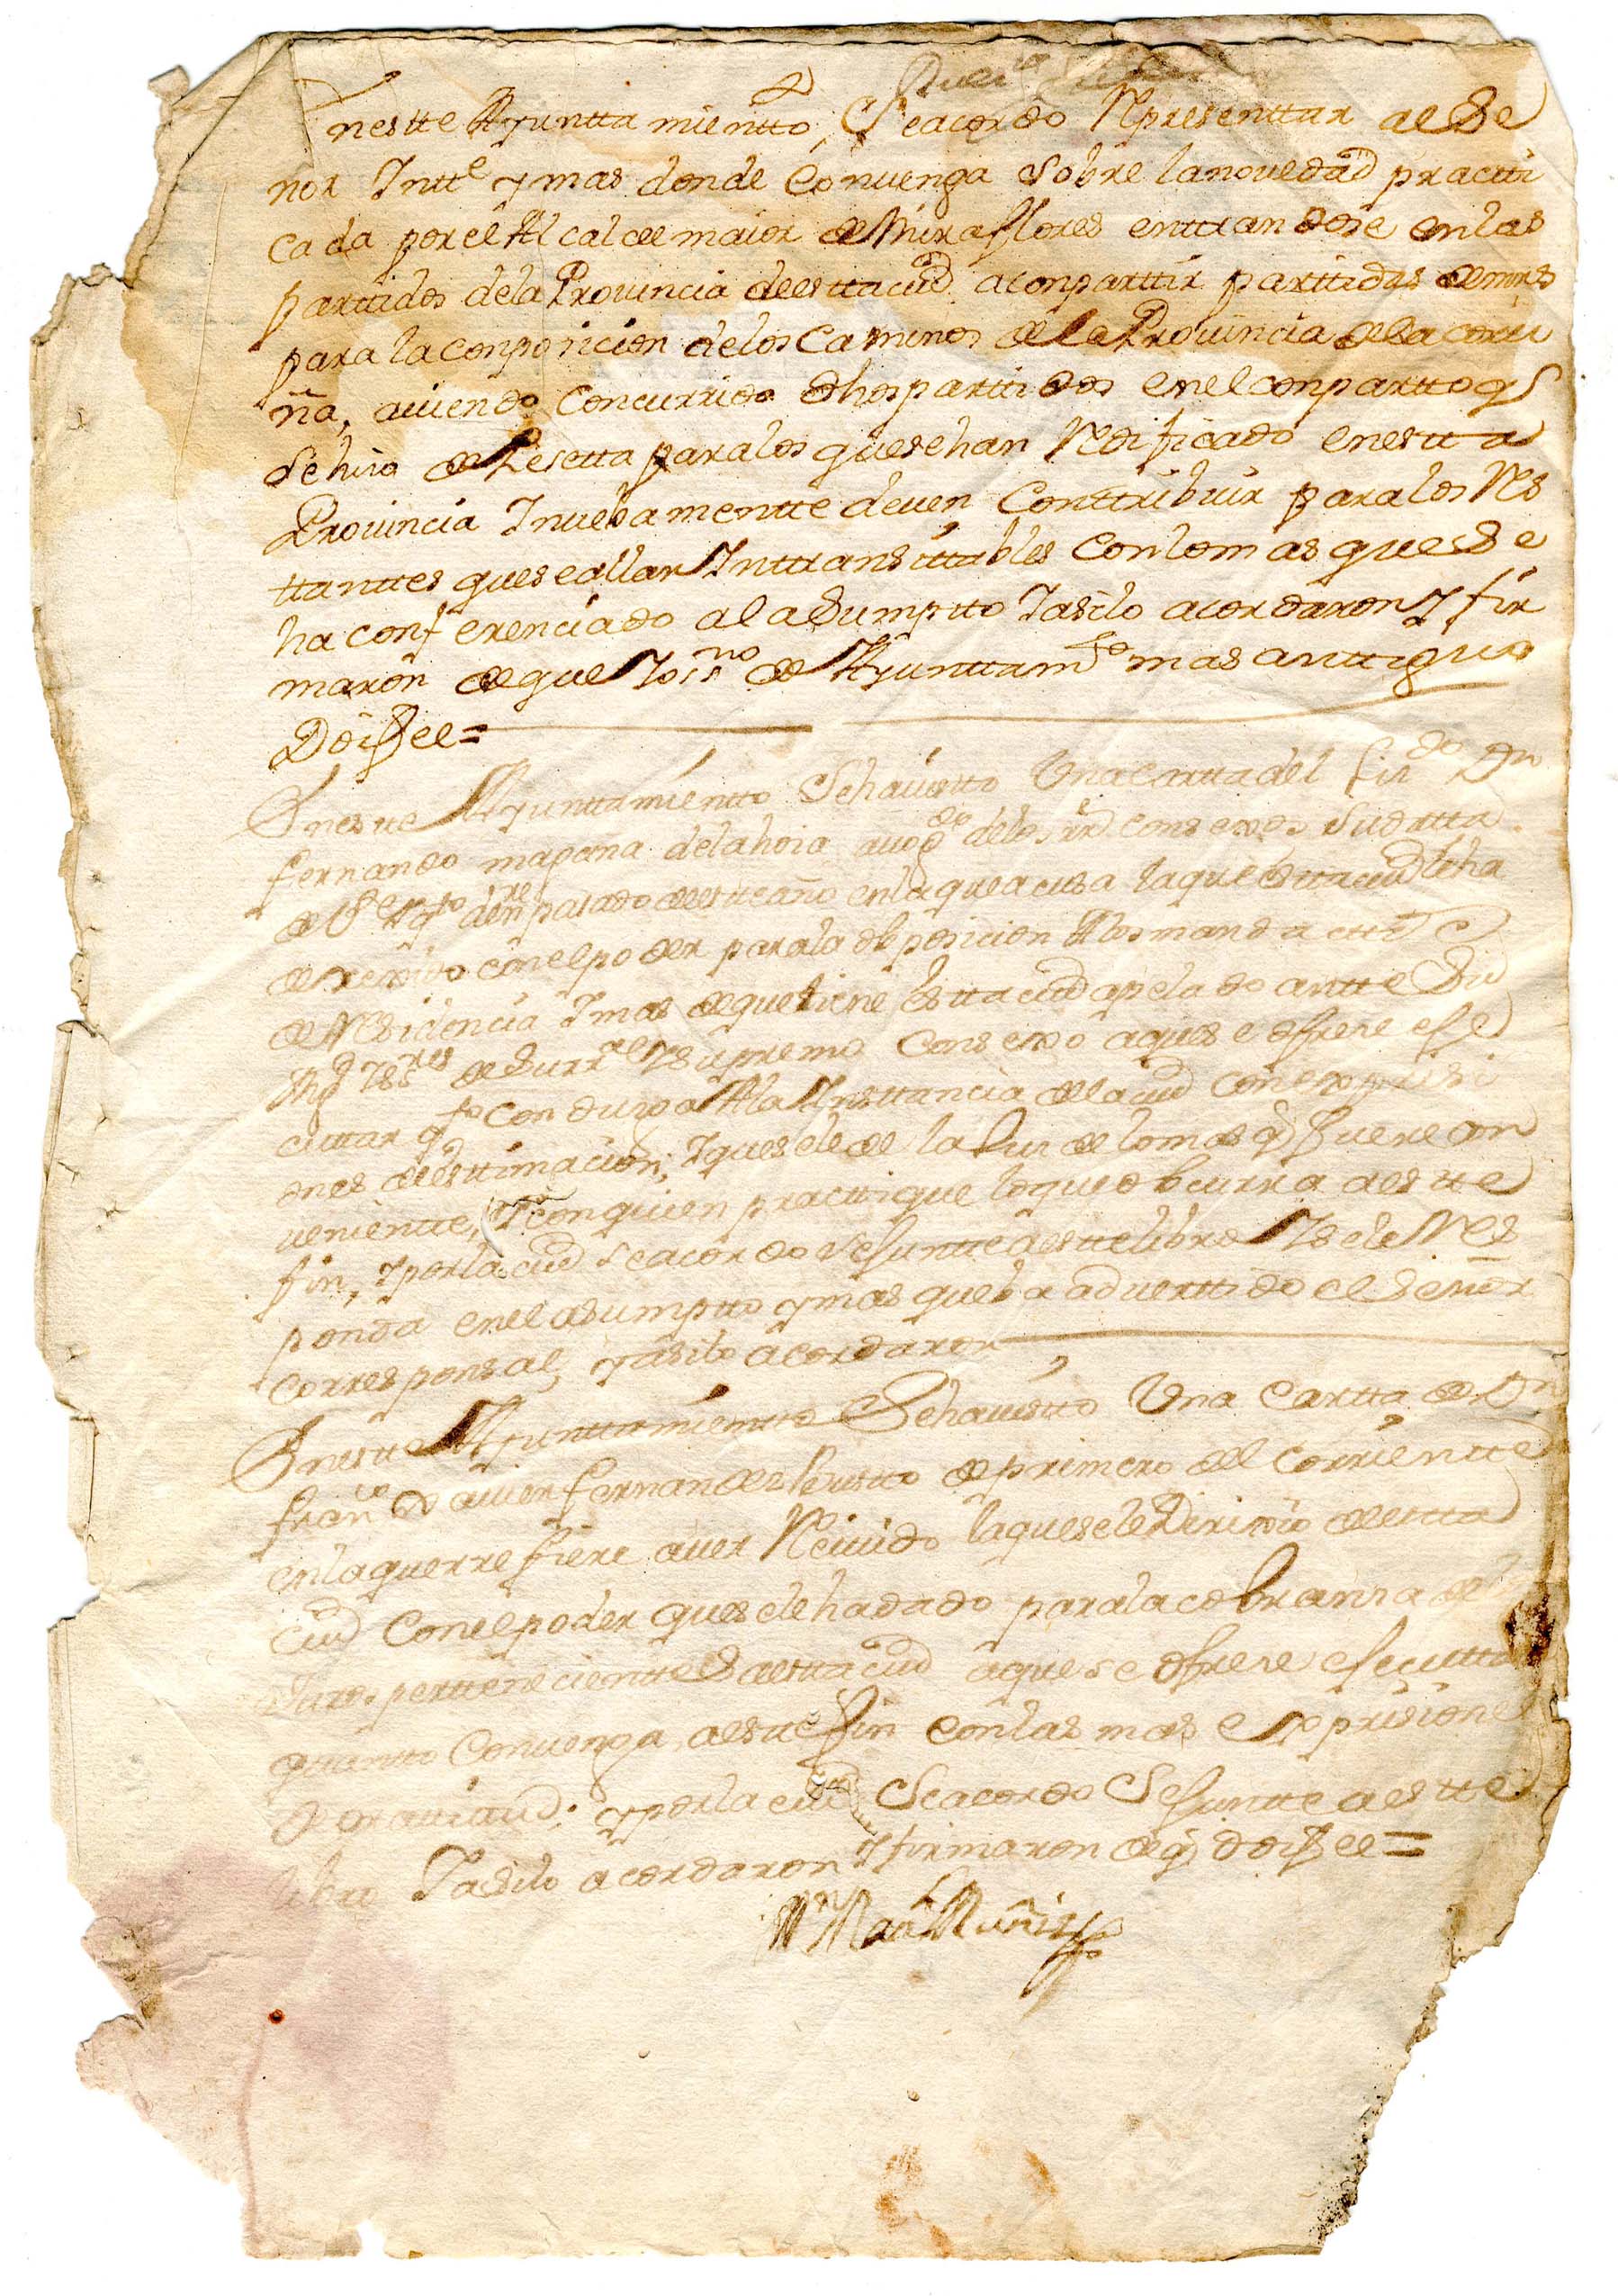 Enestte Ayunttamientto, Seacordo Representtar al Se
nor Intte y mas donde Conuenga sobre lanouedad practti
cada porel Alcalde maior de Miraflores enttrandose enlas
parttidos dela Prouincia deesttaciud aconparttir parttidas de mrs
para laconposicion delos Caminos de la Prouincia delacoru
ña, auiendo Concurrido dhos parttidos enel conpartto q
Sehizo de Pesetta paralos quesehan Redificado enestta
Prouincia Inuebamentte deuen Conttribuir paralos Res
ttanttes queseallan Inttransittables Conlomas quese
ha conferenciado al asumptto Iasilo acordaron y fir
maron de que Io ssno de Ayunttamto mas anttiguo
Doi fee =
Enestte Ayunttamientto Sehauistto Una cartta del Lizdo Dn
fernando mapana delahoia auogdo delos rrs consexos Sudatta
de Ve Agto denrre pasado deestteaño enlaqueacusa laque esttaciud leha
dexexido conelpoder parala oposicion Alos mand
de Residencia Imas dequetiene Esttaciud apelado antte Su
Mgd Issres de Surrl Isupremo Consexo aquese ofreze efe
cuttar qto Conduzga Ala Insttancia delaciud Conexpresi
ones deesttimacion, Iquesele de la luz de lomas q fuere con
uenientte, y con quien practtique loqueobcurra aestte
fin, yporlaciud seacordo sejuntteaesttelibro Isele Res
ponda enel asumptto ymas queba aduerttido el Señor
Corresponsal, yasilo acordaron
Enestte Ayunttamientto Sehauistto Una Cartta de Dn
franco Xauier fernandez de primero del Corrientte
enlaquerrefiere auer Reciuido laqueseledirixio deestta
Ciud Conelpoder queselehadado paralacobranza de
Juros perttenecienttes aesttaciud aquese ofreze efecuttar
quantto Conuenga aestte fin Conlas mas expresiones
de grattitud; yporla ciud Seacordo Sejuntte aestte
libro Iasilo acordaron yfirmaron de q doi fee =